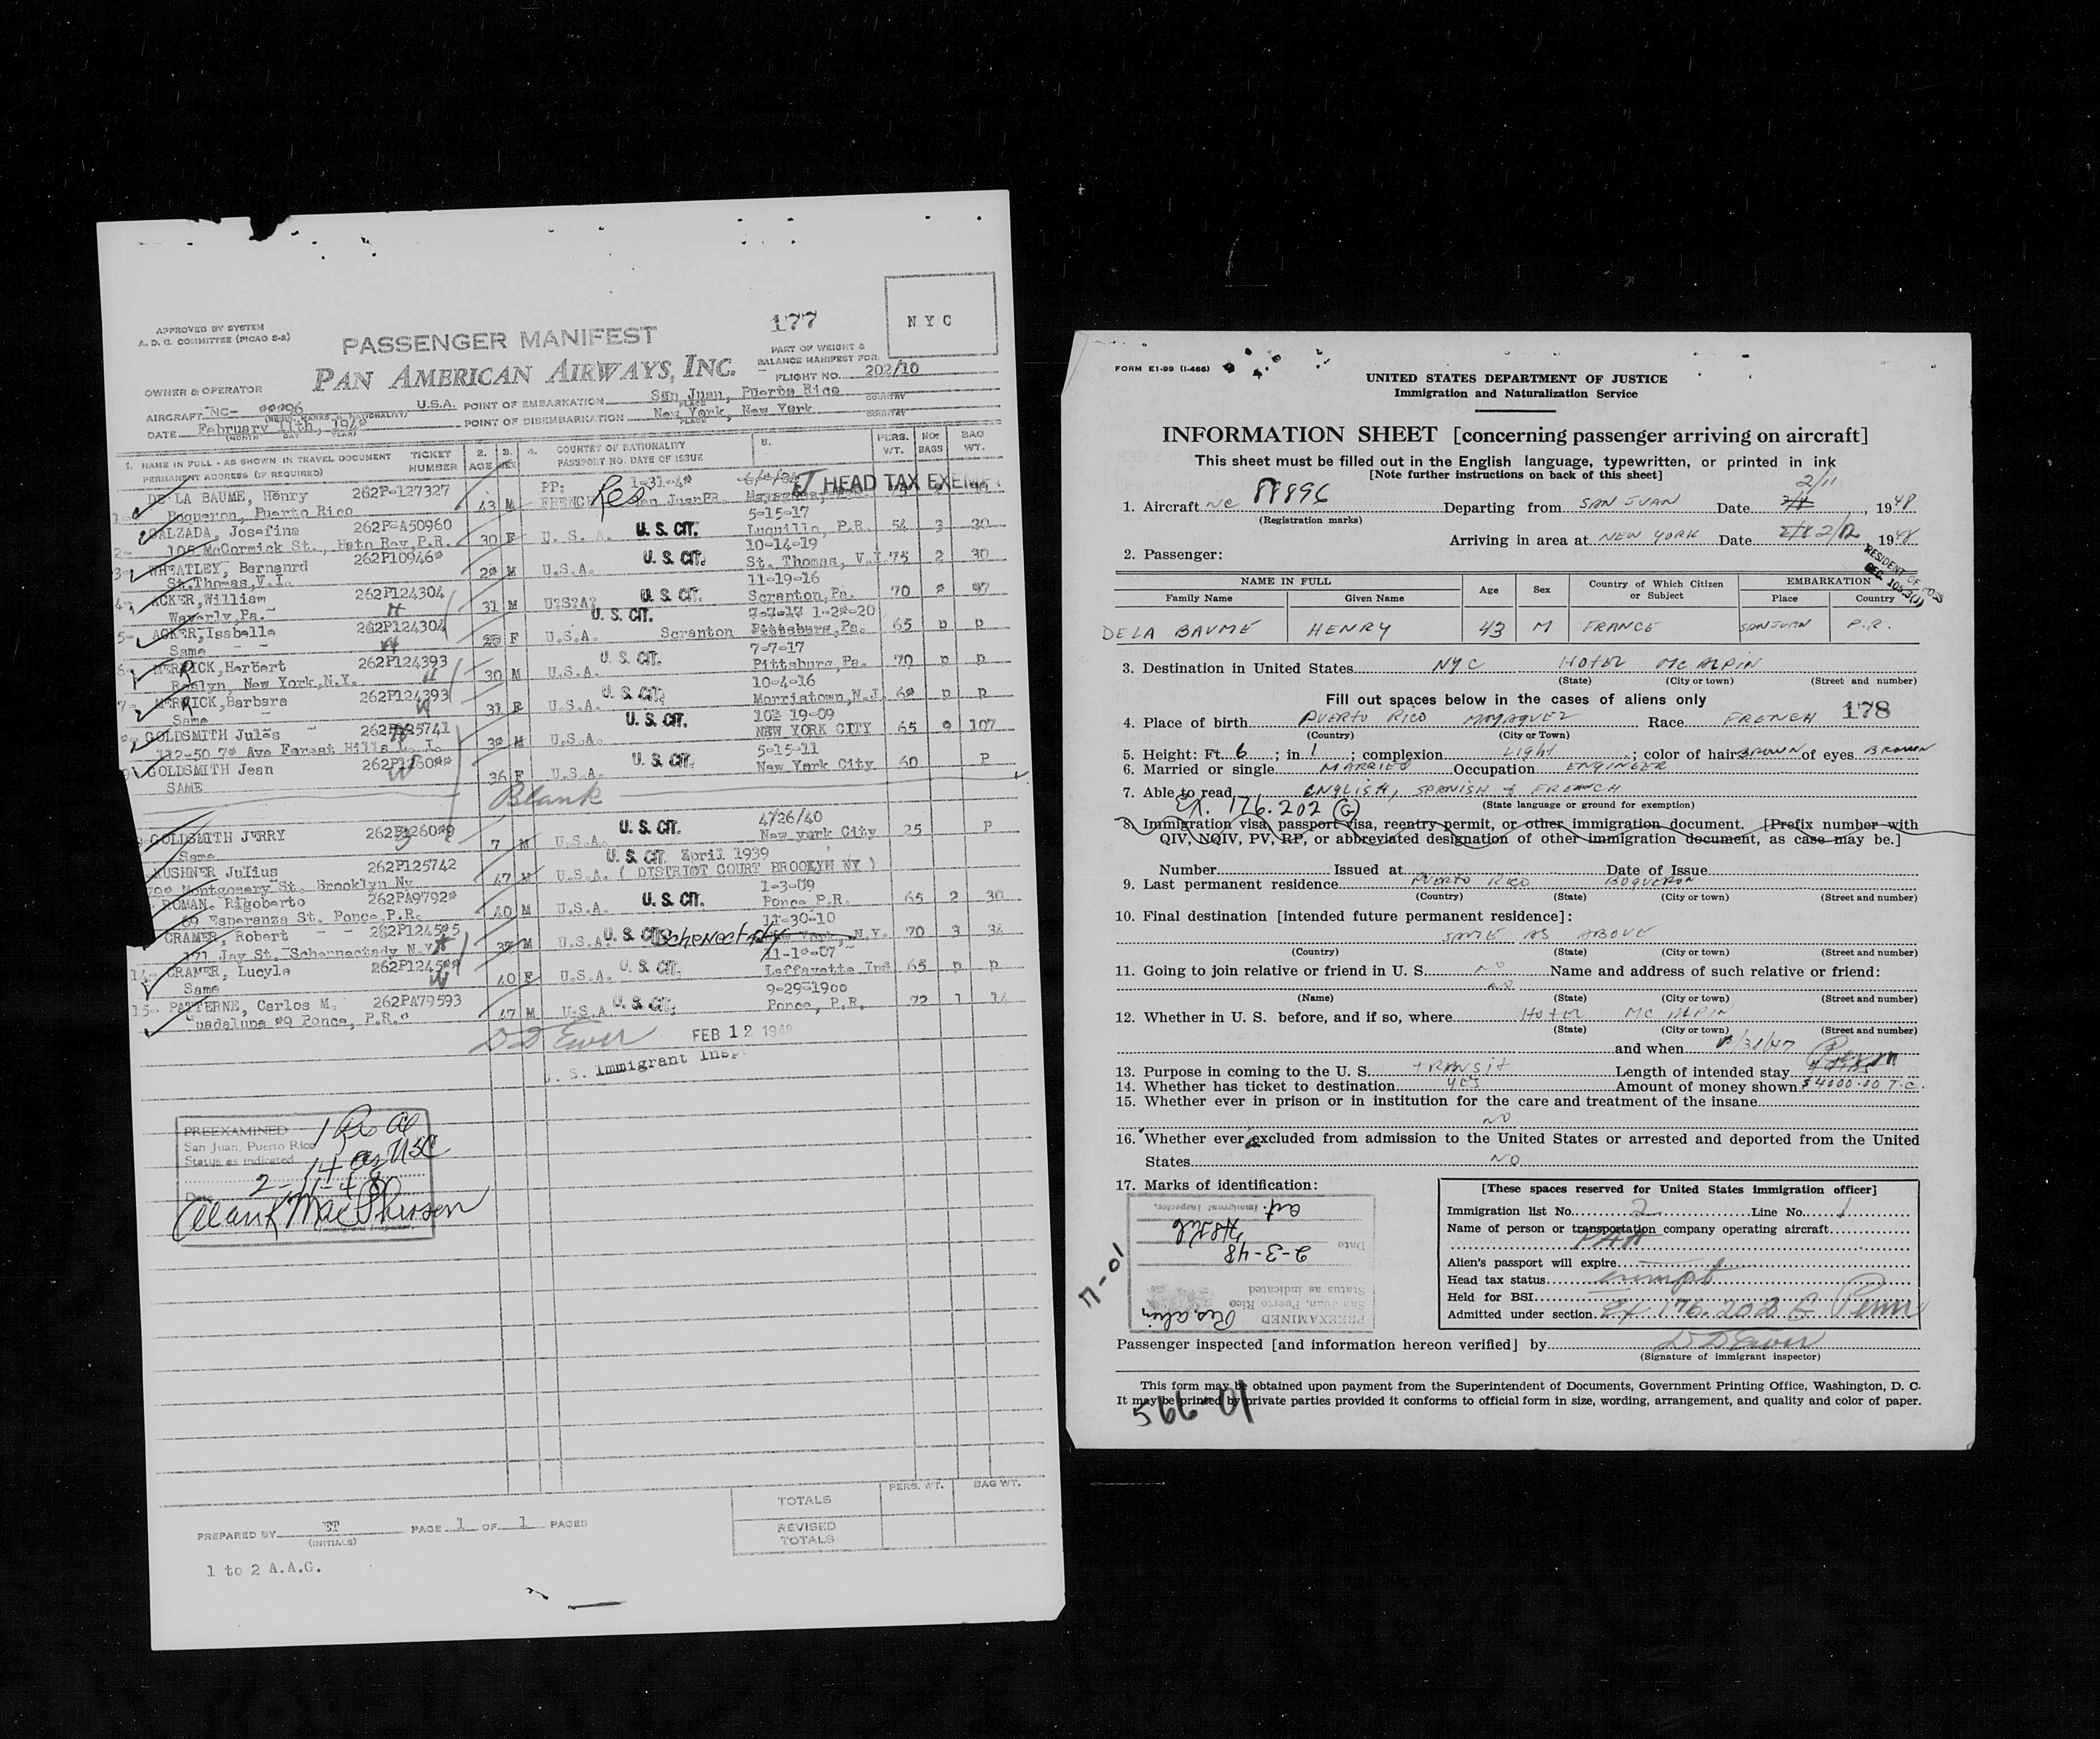 APPROVED BY SYSTEM
A. D. C. COMMITTEE (PICAO S-2)
PASSENGER MANIFEST
PAN AMERICAN AIRWAYS, INC.
177
NYC
PART OF WEIGHT &
BALANCE MANIFEST FOR:
FLIGHT NO. 202/10
OWNER & OPERATOR
AIRCRAFT NC- 96 U.S.A. POINT OF EMBARKATION San Juan, Puerto Rico
DATE February 11th, POINT OF DISEMBARKATION New York, New York
(MONTH DAY YEAR) PLACE COUNTRY
1. NAME IN FULL - AS SHOWN IN TRAVEL DOCUMENT TICKET NUMBER 2. AGE 3. SEX 4. COUNTRY OF NATIONALITY 5. PERS. WT. NO. BAGS BAG WT.
PERMANENT ADDRESS (IF REQUIRED) PASSPORT NO. DATE OF ISSUE
DE LA BAUME, Henry 262P-127327 43 M PP: FRENCH Res San Juan PR. HEAD TAX EXEMPT
Boqueron, Puerto Rico
5-15-17
CALZADA, Josefina 262P-A50960 30 F U. S. A. U. S. CIT. Luquillo, P.R. 54 3 30
105 McCormick St., Hato Rey, P.R.
10-14-19
3- WHEATLEY, Bernanrd M U.S.A. U. S. CIT. St. Thomas, V.I. 75 2 30
St.Thomas,V.I.
11-19-16
4- ACKER,William 262P124304 31 M U?S?A? U. S. CIT. Scranton,Pa. 70
Waverly,Pa.
5- ACKER,Isabelle 262P124304 F U.S.A. U. S. CIT. Scranton Pittsburg,Pa. 65 p p
Same
7-7-17
6- MERRICK,Herbert 262P124393 30 M U.S.A. U. S. CIT. Pittsburg,Pa. 70 p p
Roslyn, New York,N.Y.
10-4-16
7- MERRICK,Barbara 262P124393 31 F U.S.A. U. S. CIT. Morristown,N.J. p p
Same
GOLDSMITH Jules M U.S.A. U. S. CIT. NEW YORK CITY 65 107
Ave Forest Hills L. I.
5-15-11
GOLDSMITH Jean 36 F U.S.A. U. S. CIT. New York City 60 P
SAME
Blank
4/26/40
GOLDSMITH JERRY 7 M U.S.A. U. S. CIT. New york City 25 P
Same
KUSHNER Julius 262P125742 47 M U.S.A. U. S. CIT. April 1939
Montgomery St. Brooklyn Ny ( DISTRICT COURT BROOKLYN NY )
1-3-09
ROMAN, Rigoberto 40 M U.S.A. U. S. CIT. Ponce,P.R. 65 2 30
Esperanza St. Ponce,P.R.
11-30-10
CRAMER, Robert M U.S.A. U. S. CIT. Schenectady N.Y. 70 3
171 Jay St. Schernectady N.Y.
14- CRAMER, Lucyle 40 F U.S.A. U. S. CIT. Laffayette Ind 65 p p
Same
9-29-1900
15- PATTERNE, Carlos M. 262PA79593 47 M U.S.A U. S. CIT. Ponce, P.R. 72 1
Ponce, P.R.
FEB 12 1948
Immigrant Insp
PREEXAMINED
San Juan, Puerto Rico
Status as indicated
14 as USC
Date
TOTALS PERS. WT. BAG WT.
REVISED TOTALS
PREPARED BY ET PAGE 1 OF 1 PAGES
(INITIALS)
1 to 2 A.A.G.
FORM E1-99 (I-466)
UNITED STATES DEPARTMENT OF JUSTICE
Immigration and Naturalization Service
INFORMATION SHEET [concerning passenger arriving on aircraft]
This sheet must be filled out in the English language, typewritten, or printed in ink
[Note further instructions on back of this sheet]
2/11
1. Aircraft NC 88896 Departing from SAN JUAN Date , 1948
(Registration marks)
Arriving in area at NEW YORK Date 2/12 1948
2. Passenger:
NAME IN FULL Age Sex Country of Which Citizen or Subject EMBARKATION
Family Name Given Name Place Country
DE LA BAUME HENRY 43 M FRANCE SAN JUAN P.R.
3. Destination in United States NYC HOTEL MC ALPIN
(State) (City or town) (Street and number)
Fill out spaces below in the cases of aliens only
4. Place of birth PUERTO RICO MAYAGUEZ Race FRENCH 178
(Country) (City or Town)
5. Height: Ft. 6 ; in 1 ; complexion LIGHT ; color of hair BROWN of eyes BROWN
6. Married or single MARRIED Occupation ENGINEER
7. Able to read ENGLISH, SPANISH & FRENCH
(State language or ground for exemption)
Ex. 176.202 (G)
8. Immigration visa, passport visa, reentry permit, or other immigration document. [Prefix number with
QIV, NQIV, PV, RP, or abbreviated designation of other immigration document, as case may be.]
Number Issued at Date of Issue
9. Last permanent residence PUERTO RICO BOQUERON
(Country) (State) (City or town) (Street and number)
10. Final destination [intended future permanent residence]:
SAME AS ABOVE
(Country) (State) (City or town) (Street and number)
11. Going to join relative or friend in U. S. NO Name and address of such relative or friend:
NO
(Name) (State) (City or town) (Street and number)
12. Whether in U. S. before, and if so, where HOTEL MC ALPIN
(State) (City or town) (Street and number)
and when
13. Purpose in coming to the U. S. TRANSIT Length of intended stay
14. Whether has ticket to destination YES Amount of money shown $4000.00 T.C.
15. Whether ever in prison or in institution for the care and treatment of the insane
NO
16. Whether ever excluded from admission to the United States or arrested and deported from the United
States NO
17. Marks of identification:
PREEXAMINED
San Juan, Puerto Rico
Status as indicated
Date 2-3-48
Immigrant Inspector.
[These spaces reserved for United States immigration officer]
Immigration list No. 2 Line No. 1
Name of person or transportation company operating aircraft
PAA
Alien's passport will expire
Head tax status exempt
Held for BSI
Admitted under section Ex 176.202 G
Passenger inspected [and information hereon verified] by
(Signature of immigrant inspector)
This form may be obtained upon payment from the Superintendent of Documents, Government Printing Office, Washington, D. C.
It may be printed by private parties provided it conforms to official form in size, wording, arrangement, and quality and color of paper.
566-01